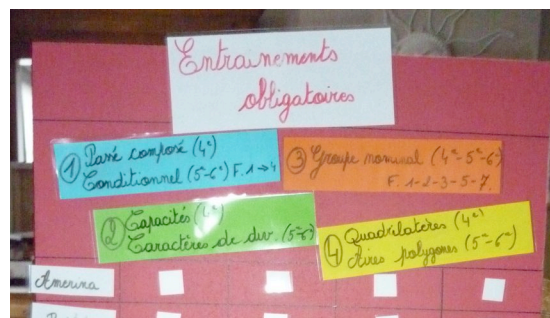 Entrainements
obligatoires
1 Passé composé (4e)
Conditionnel (5e-6e) F. 1→4
3 Groupe nominal (4e-5e-6e)
F. 1-2-3-5-7.
2 Capacités (4e)
Caractères de div. (5e-6e)
4 Quadrilatères (4e)
Aires polygones (5e-6e)